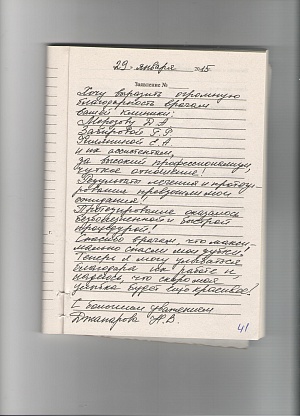 29 января 2015
Заявление №
Хочу выразить огромную
благодарность врачам
вашей клиники:
Морозову Д.А
Забировой Г.Ф
Е.А
и их ассистентам,
за высокий профессионализм,
чуткое отношение!
Результат лечения и протези-
рования превзошли мои
ожидания!
Протезирование оказалось
безболезненной и быстрой
процедурой!
Спасибо врачам, что макси-
мально спасли мои зубки.
Теперь я могу улыбаться
благодаря их работе и
надеюсь, что скоро моя
улыбка будет ещё красивее!
С большим уважением
Джапарова А.В.
41